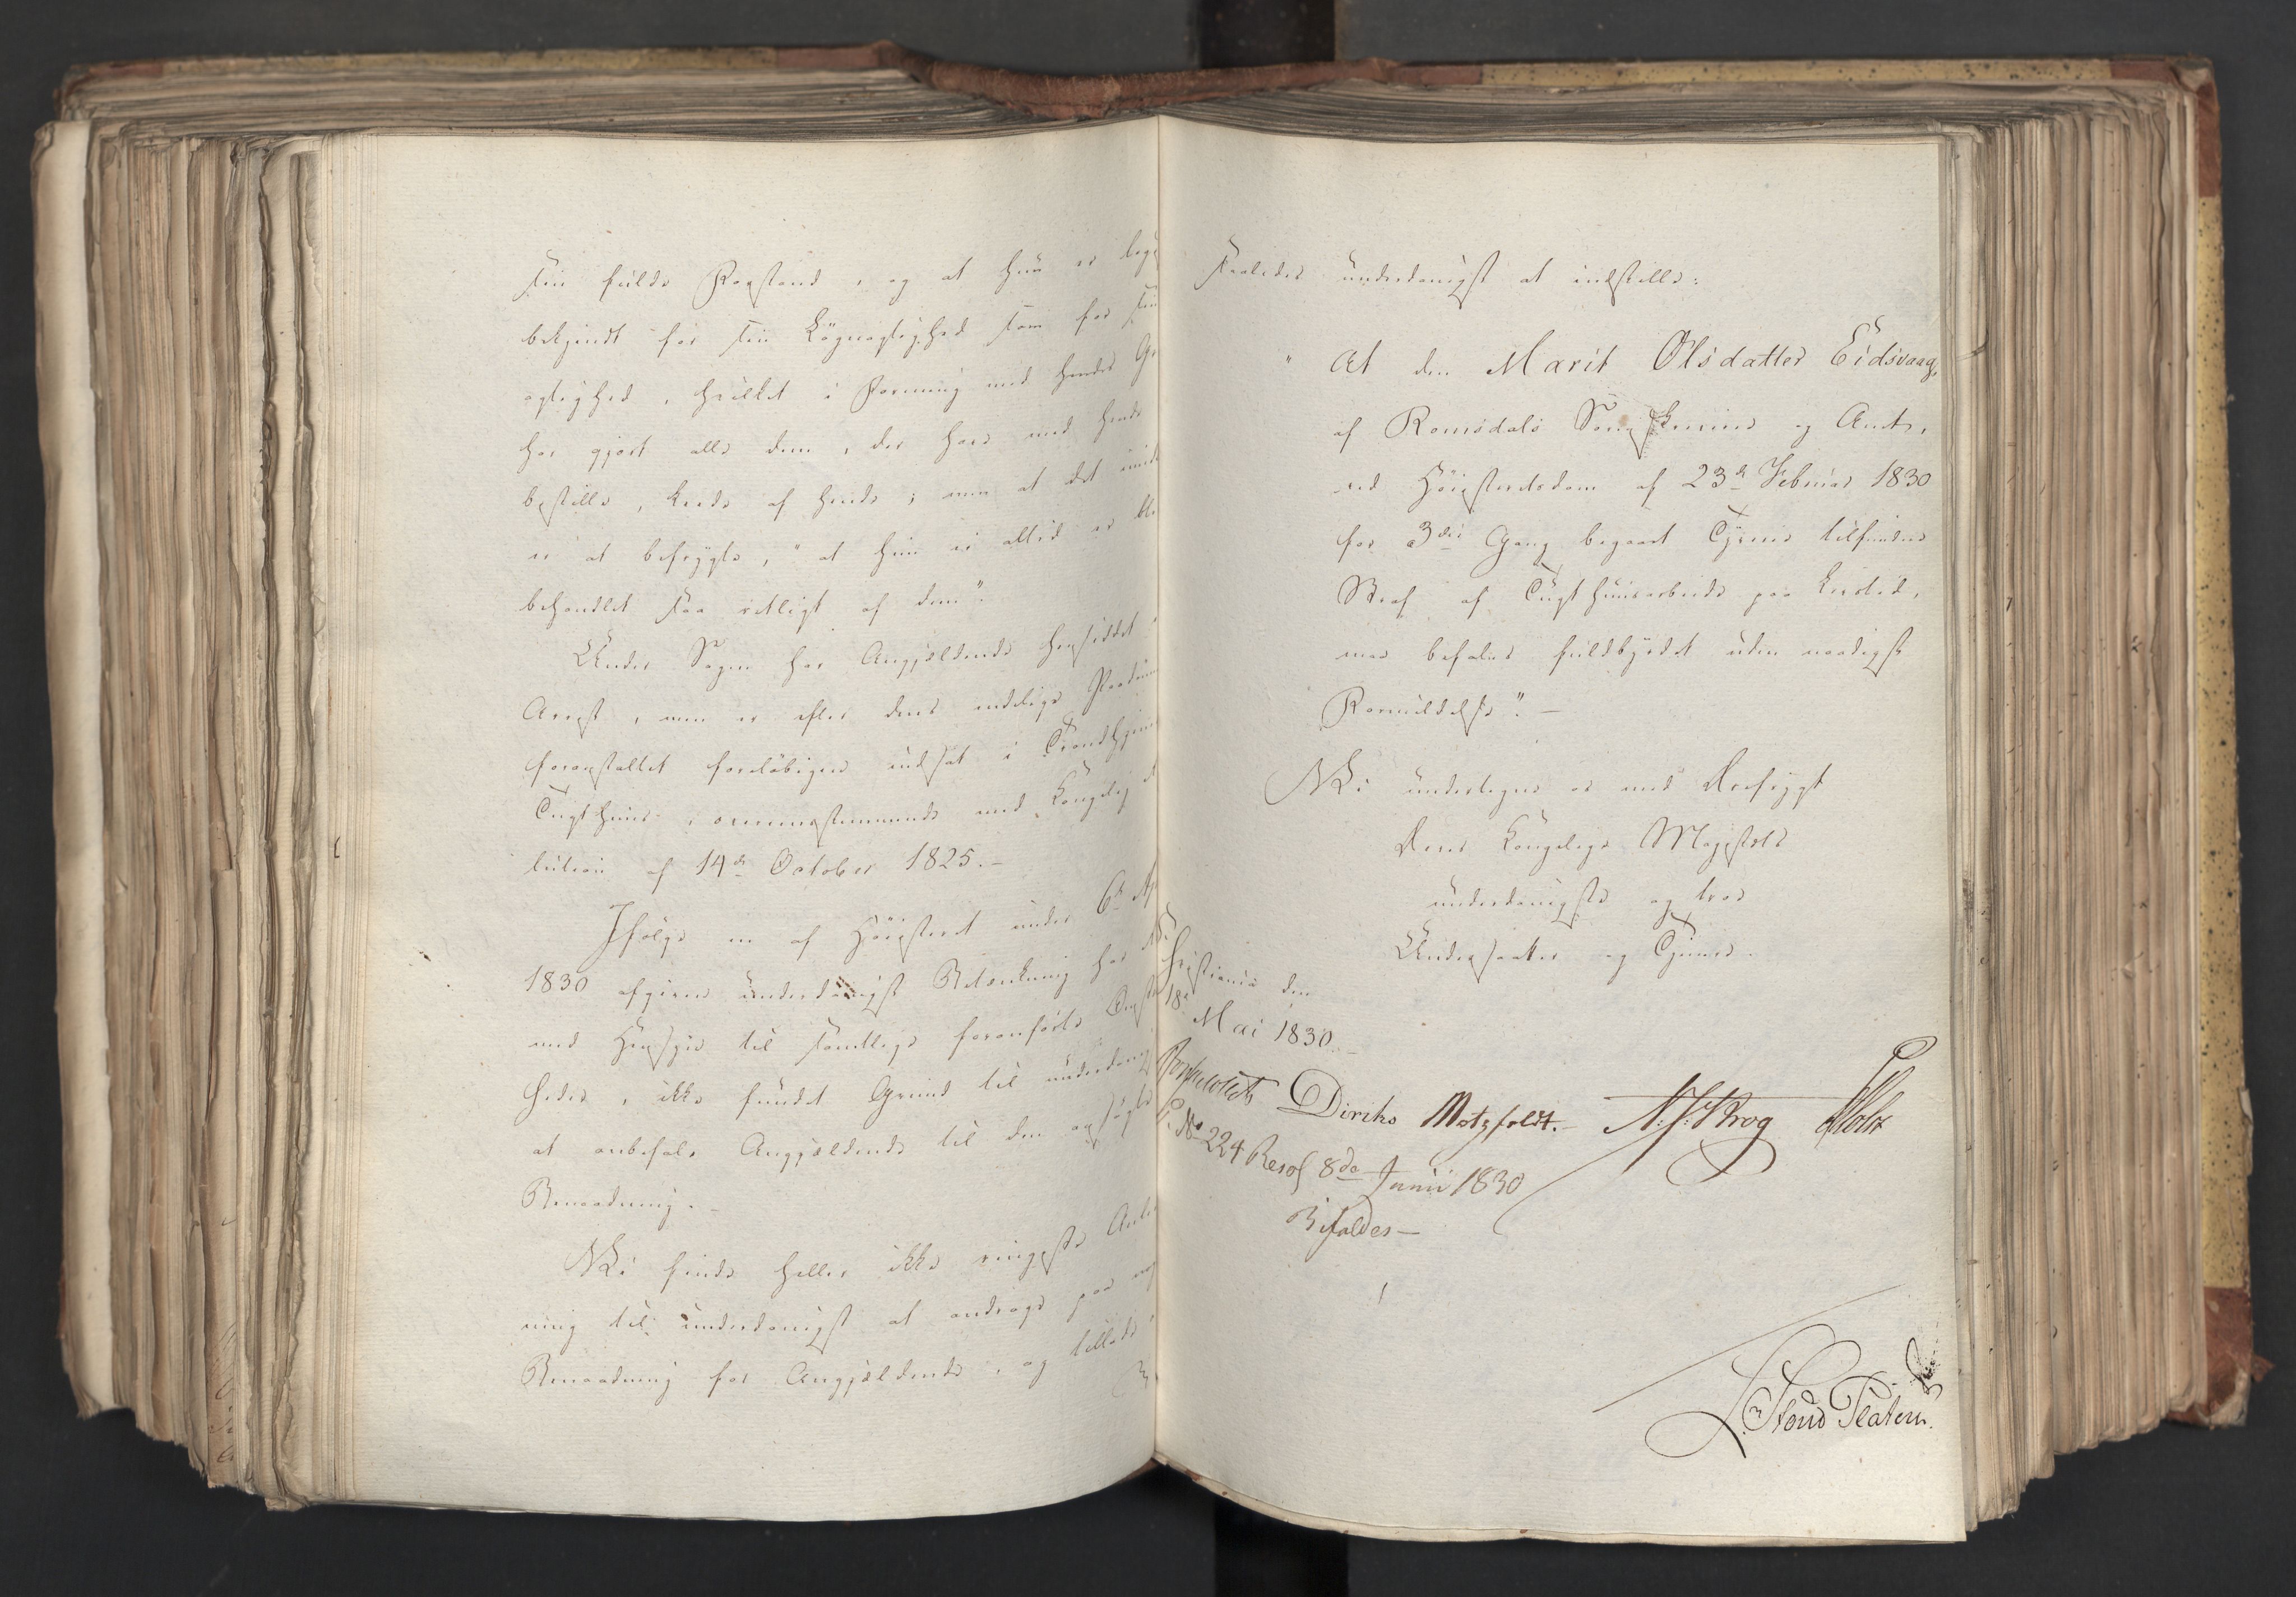 sin fulde Forstand, og at hun er
bekjendt for sin Løgnagtighed som for
agtighed, hvilket i Forening med hendes
har gjort alle dem, der have med hende
bestille, kede af hende; men at det
er at befrygte, "at hun ei altid er
behandlet saa retligt af dem".
Under Sagen har Angjældende hensiddet
Arrest, men er efter dens endelige
foranstaltet foreløbigen indsat i Trondhjems
Tugthuus, overensstemmende med Kongelig
lution af 14de October 1825.-
Ifølge en af Høiesteret under 6te
1830 afgiven underdanigst Betænkning har
med Hensyn til samtlige foranførte
heder, ikke fundet Grund til underdanigst
at anbefale Angjældende til den ansøgte
Benaadning.-
Vi finde heller ikke ringeste
ning til underdanigst at andrage paa
Benaadning for Angjældende, og tillade
saaledes underdanigst at indstille:
"At den Marit Olsdatter Eidsvaag,
af Romsdals Sorenskriverie og Amt,
ved Høiesteretsdom af 23de Februar 1830
for 3die Gang begaaet Tyverie tilfundne
Straf af Tugthuusarbeide paa Livstid,
maa befales fuldbyrdet uden naadigst
Formildelse".-
Vi undertegne os med Ærefrygt
Deres Kongelige Majestæts
underdanigste og troe
Undersaatter og Tjenere.
Christiania den
18de Mai 1830.-
Diriks Motzfeldt.- N. J. Krog Holst
No 224 Resol 8de Junii 1830
Bifaldes-